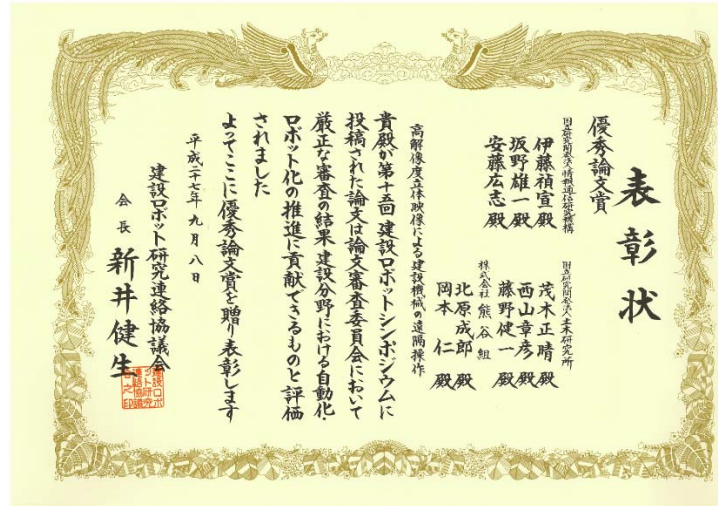 表彰状
優秀論文賞
国立研究開発法人情報通信研究機構
伊藤禎宣殿
坂野雄一殿
安藤広志殿
国立研究開発法人土木研究所
茂木正晴殿
西山章彦殿
藤野健一殿
株式会社熊谷組
北原成郎殿
岡本仁殿
高解像度立体映像による建設機械の遠隔操作
貴殿が第十五回建設ロボットシンポジウムに
投稿された論文は論文審査委員会において
厳正な審査の結果建設分野における自動化・
ロボット化の推進に貢献できるものと評価
されました
よってここに優秀論文賞を贈り表彰します
平成二十七年九月八日
建設ロボット研究連絡協議会
会長 新井健生
建設ロボ
ット研究
連絡協議
会之印